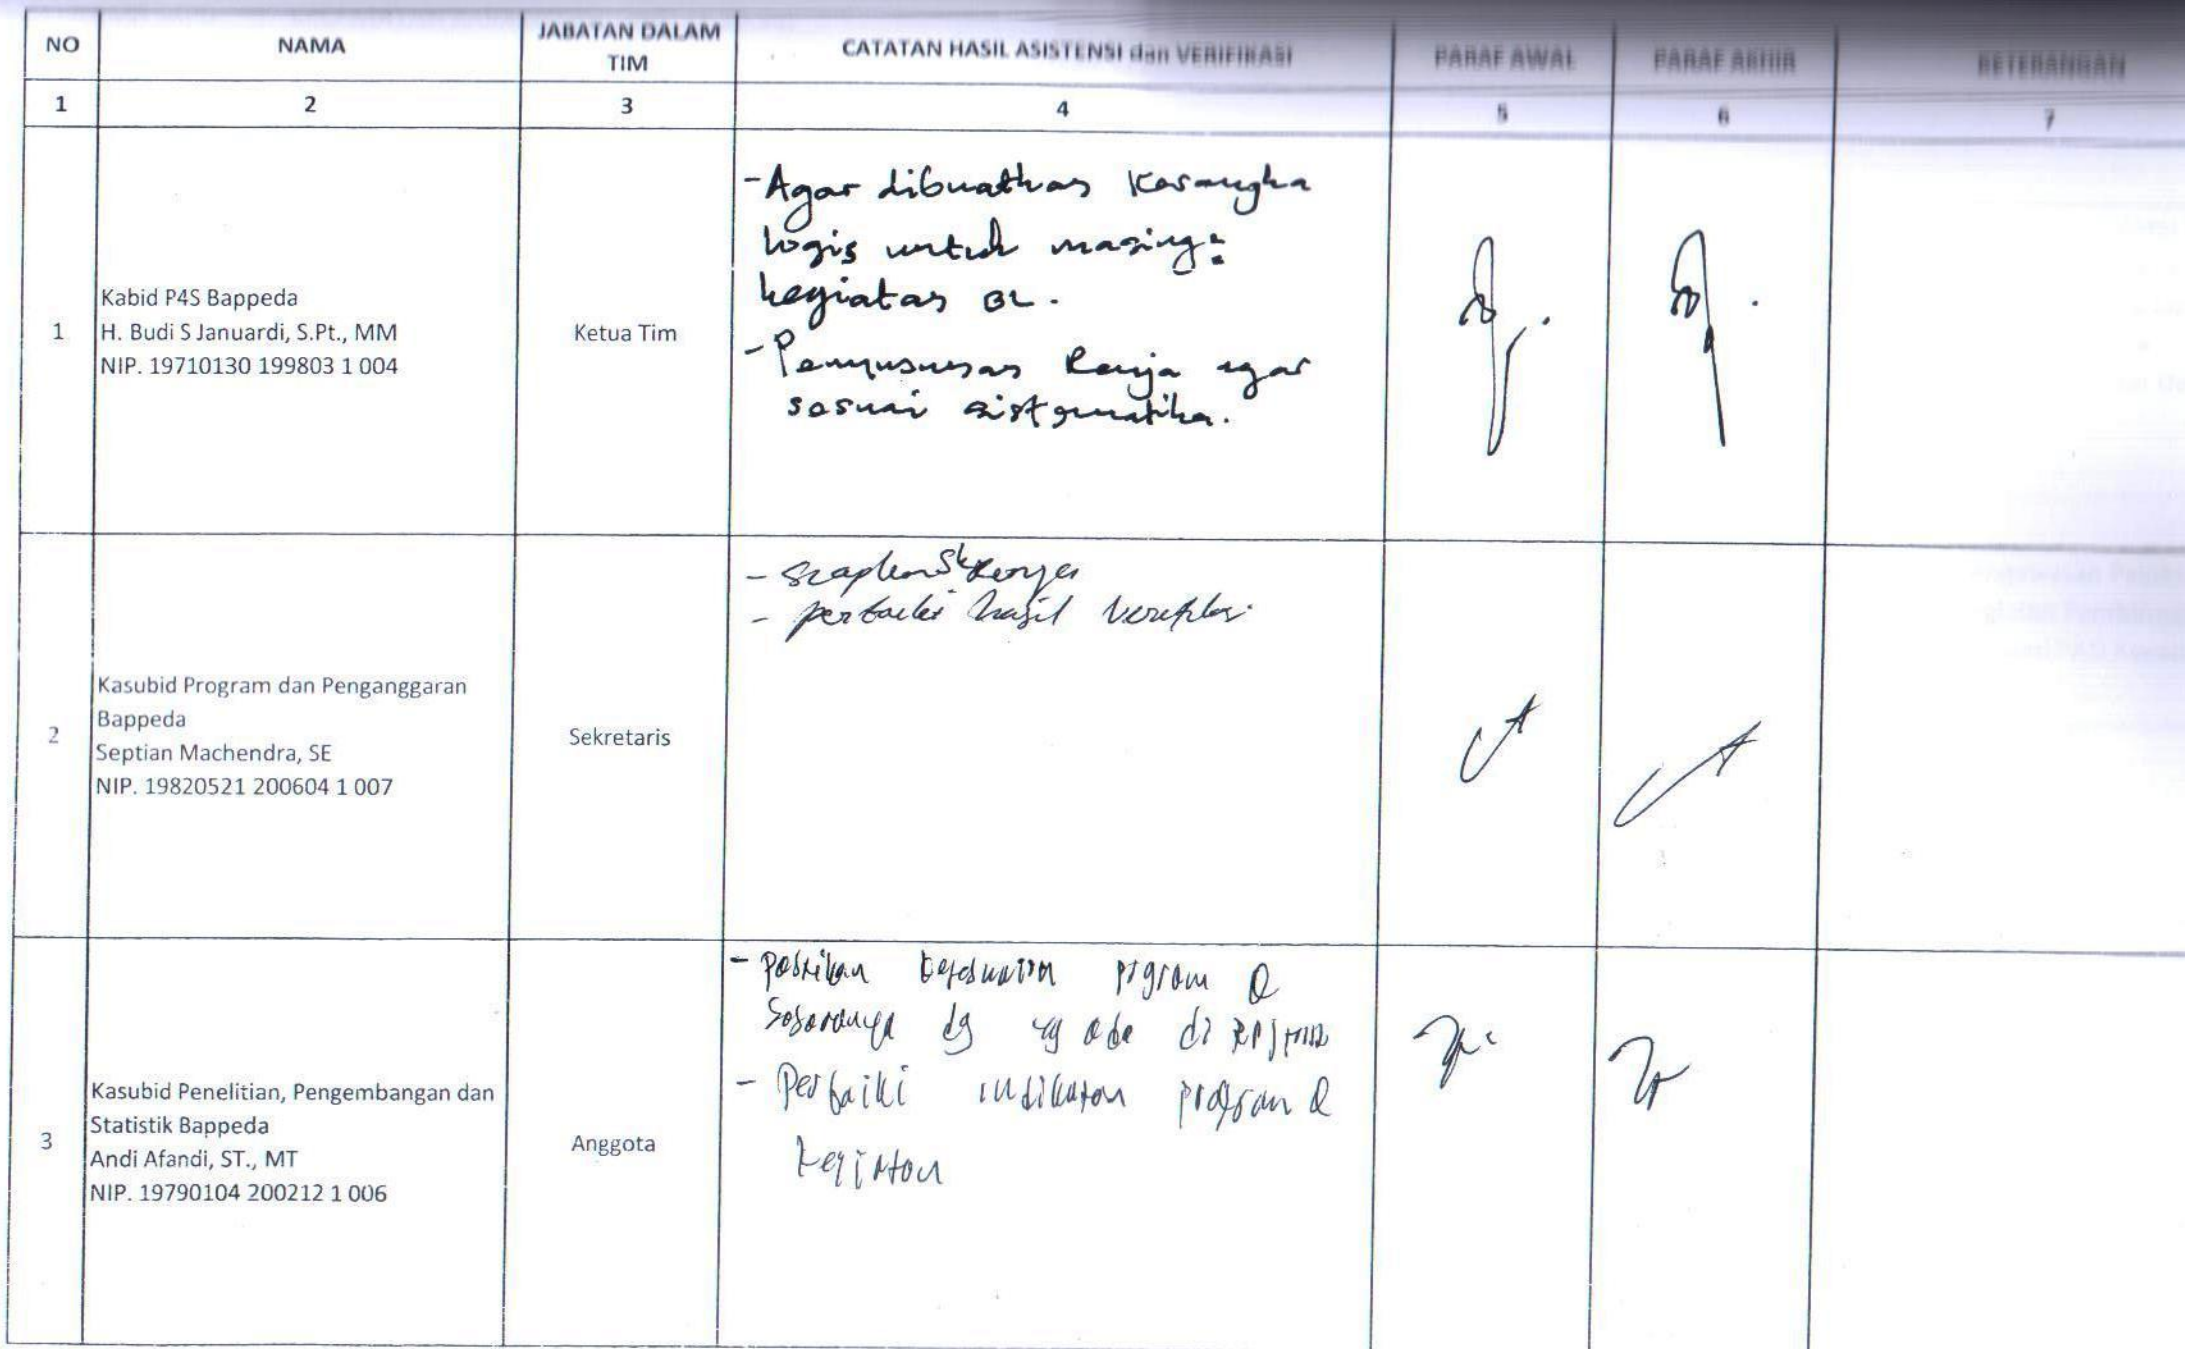 NO
NAMA
JABATAN DALAM
TIM
CATATAN HASIL ASISTENSI dan VERIFIKASI
PARAF AWAL
PARAF AKHIR
KETERANGAN
1
2
3
4
5
6
7
1
Kabid P4S Bappeda
H. Budi S Januardi, S.Pt., MM
NIP. 19710130 199803 1 004
Ketua Tim
- Agar dibuatkan Kerangka
logis untuk masing2
kegiatan BL.
- Penyusunan Renja agar
sesuai sistematika.
2
Kasubid Program dan Penganggaran
Bappeda
Septian Machendra, SE
NIP. 19820521 200604 1 007
Sekretaris
- siapkan SK Renja
- perbaiki hasil
3
Kasubid Penelitian, Pengembangan dan
Statistik Bappeda
Andi Afandi, ST., MT
NIP. 19790104 200212 1 006
Anggota
- Pastikan kesesuaian program &
Sasarannya dg yg ada di RPJMD
- Perbaiki indikator program &
kegiatan